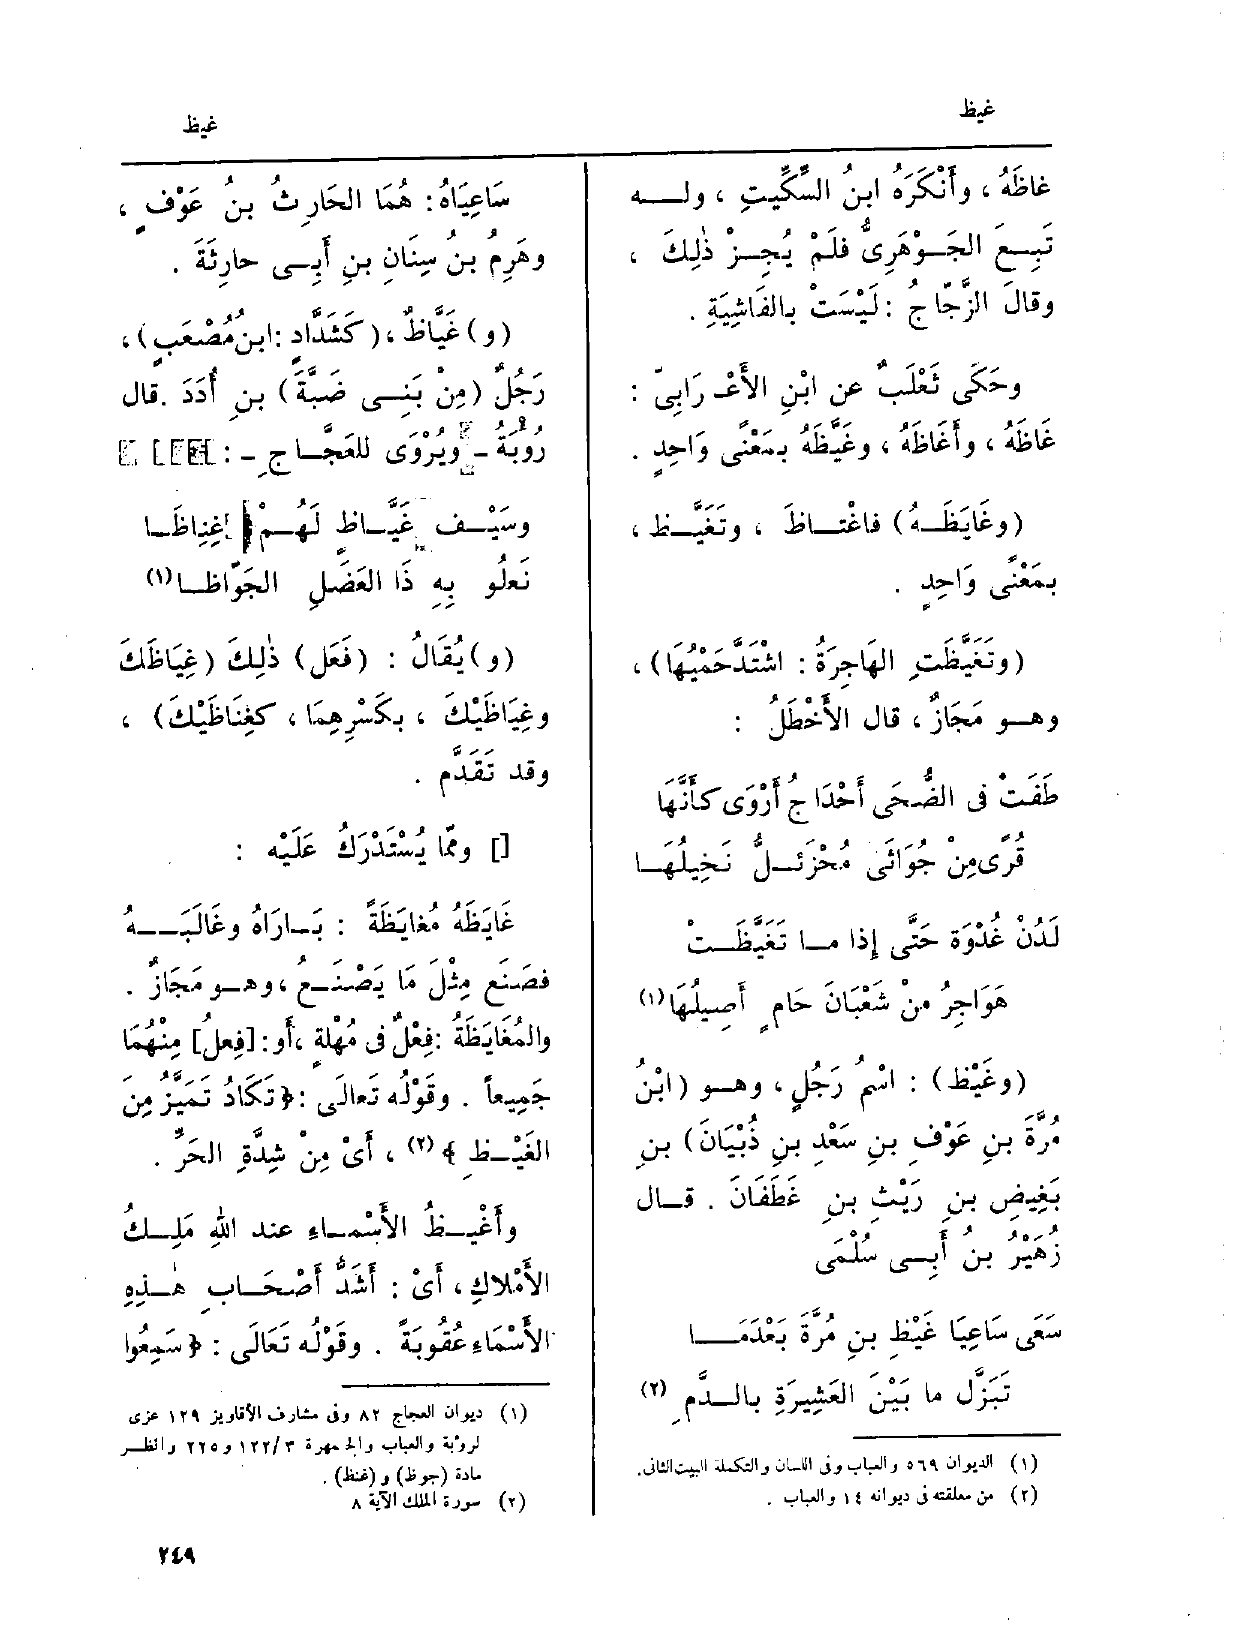 غيظ
غيظ
غاظَهُ ، وأَنْكَرَهُ ابنُ السِّكِّيتِ ، ولــه
تَبِـعَ الجَـوْهَرِىُّ فلَمْ يُجِـزْ ذٰلِكَ ،
وقالَ الزَّجّاجُ : لَيْسَتْ بالفَاشِيَةِ .
وحَكَى ثَعْلَبٌ عن ابْنِ الأَعْـرَابِىّ :
غَاظَهُ ، وأَغَاظَهُ ، وغَيَّظَهُ بمَعْنًى وَاحِدٍ .
(وغَايَظَـهُ) فاغْتَـاظَ ، وتَغَيَّـظ ،
بمَعْنًى وَاحِدٍ .
(وتَغَيَّظَتِ الهَاجِرَةُ : اشْتَدَّ حَمْيُهَا) ،
وهـو مَجَازٌ ، قال الأَخْطَلُ :
طَفَتْ فى الضُّحَى أَحْدَاجُ أَرْوَى كأَنَّهَا
قُرًى مِنْ جُوَاثَى مُحْزَئِـلٌّ نَخِيلُهَـا
لَدُنْ غُدْوَة حَتَّى إِذا مـا تَغَيَّظَـتْ
هَوَاجِرُ منْ شَعْبَانَ حَامٍ أَصِيلُهَا(١)
(وغَيْظ) : اسْمُ رَجُلٍ ، وهـو (ابْنُ
مُرَّةَ بنِ عَوْفِ بنِ سَعْدِ بنِ ذُبْيَانَ) بنِ
بَغِيضِ بنِ رَيْثِ بنِ غَطَفَانَ . قـال
زُهَيْرُ بنُ أَبِـى سُلْمَى
سَعَى سَاعِيَا غَيْظِ بنِ مُرَّةَ بَعْدَمَــا
تَبَزَّل ما بَيْنَ العَشِيرَةِ بالـدَّمِ (٢)
(١) الديوان ٥٦٩ والعباب وفى اللسان والتكملة البيت الثانى.
(٢) من معلقته فى ديوانه ١٤ والعباب .
سَاعِيَاهُ: هُمَا الحَارِثُ بنُ عَوْفٍ ،
وهَرِمُ بنُ سِنَانِ بنِ أَبِـى حارِثَةَ .
(و) غَيَّاظٌ ، (كشَدَّادٍ : ابنُ مُصْعَبٍ) ،
رَجُلٌ (مِنْ بَنِـى ضَبَّةَ) بنِ أُدَدَ . قال
رُوبَةُ - ويُرْوَى للعَجَّـاجِ - :
وسَيْـف غَيَّـاظ لَهُـمْ غِنَاظَـا
نَعلُو بِهِ ذَا العَضَلِ الجَوّاظَـا(١)
(و) يُقَالُ : (فَعَل) ذٰلِكَ (غِيَاظَكَ
وغِيَاظَيْكَ ، بكَسْرِهِمَا ، كغِنَاظَيْكَ) ،
وقد تَقَدَّم .
[] وممّا يُسْتَدْرَكُ عَلَيْه :
غَايَظَهُ مُغايَظَةً : بَـارَاهُ وغَالَبَــهُ
فصَنَع مِثْلَ مَا يَصْنَـع ، وهـو مَجَازٌ .
والمُغَايَظَةُ : فِعْلٌ فى مُهْلَةٍ ، أَو : [فِعلُ] مِنْهُمَا
جَمِيعاً . وقَوْلُه تَعالَى : ﴿تَكَادُ تَمَيَّزُ مِنَ
الغَيْـظِ ﴾ (٢) ، أَىْ مِنْ شِدَّةِ الحَرِّ .
وأَغْيَـظُ الأَسْمـاءِ عند اللهِ مَلِـكُ
الأَمْلاكِ ، أَىْ : أَشَدُّ أَصْحَابِ هٰـذِهِ
الأَسْمَاءِ عُقُوبَةً . وقَوْلُه تَعَالَى : ﴿ سَمِعُوا
(١) ديوان العجاج ٨٢ وفى مشارف الأقاويز ١٢٩ عزى
لرؤبة والعباب والجمهرة ١٢٢/٣ و ٢٢٥ وانظر
مادة (جوظ) و (غنظ) .
(٢) سورة الملك الآية ٨
٢٤٩